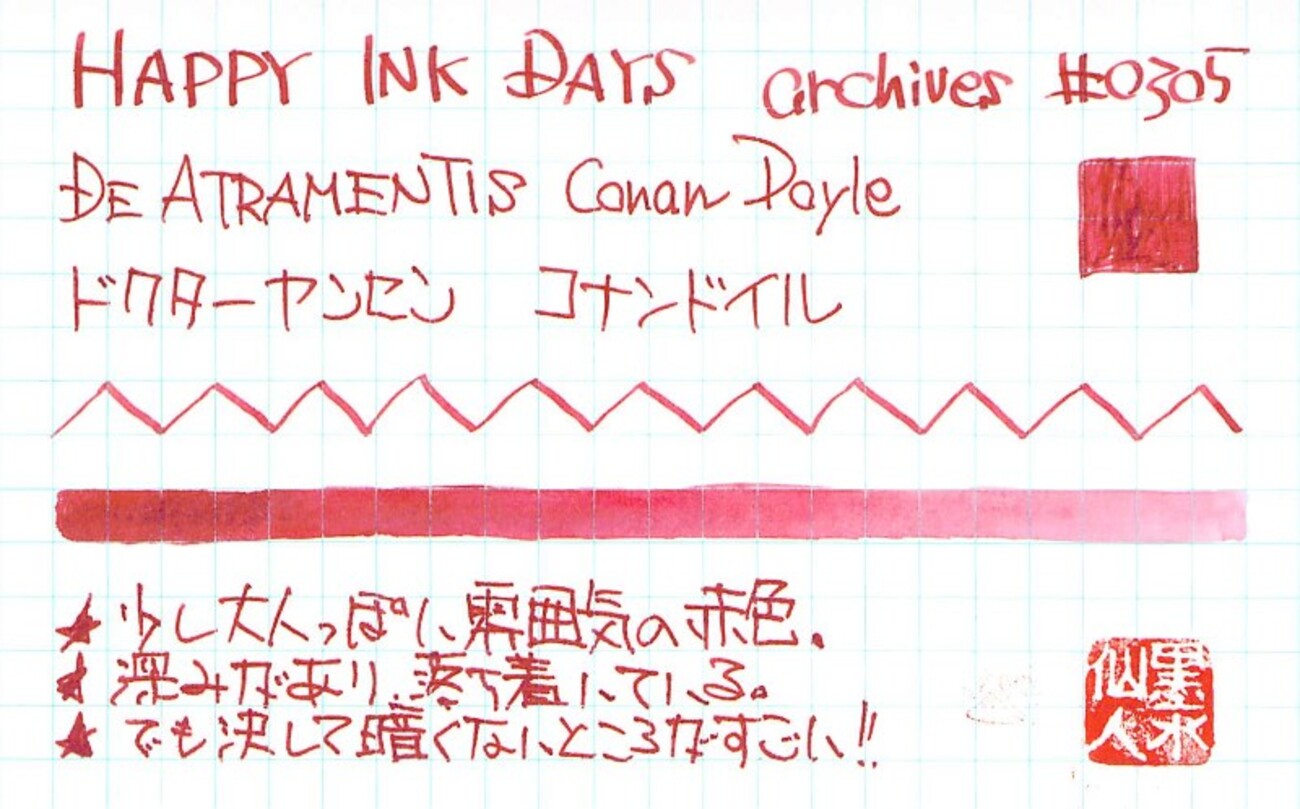 HAPPY INK DAYS archives #0305
DE ATRAMENTIS Conan Doyle
ドクターヤンセン コナンドイル
★ 少し大人っぽい雰囲気の赤色.
★ 深みがあり、落ち着いている。
★ でも決して暗くないところがすごい!!
墨水
仙人